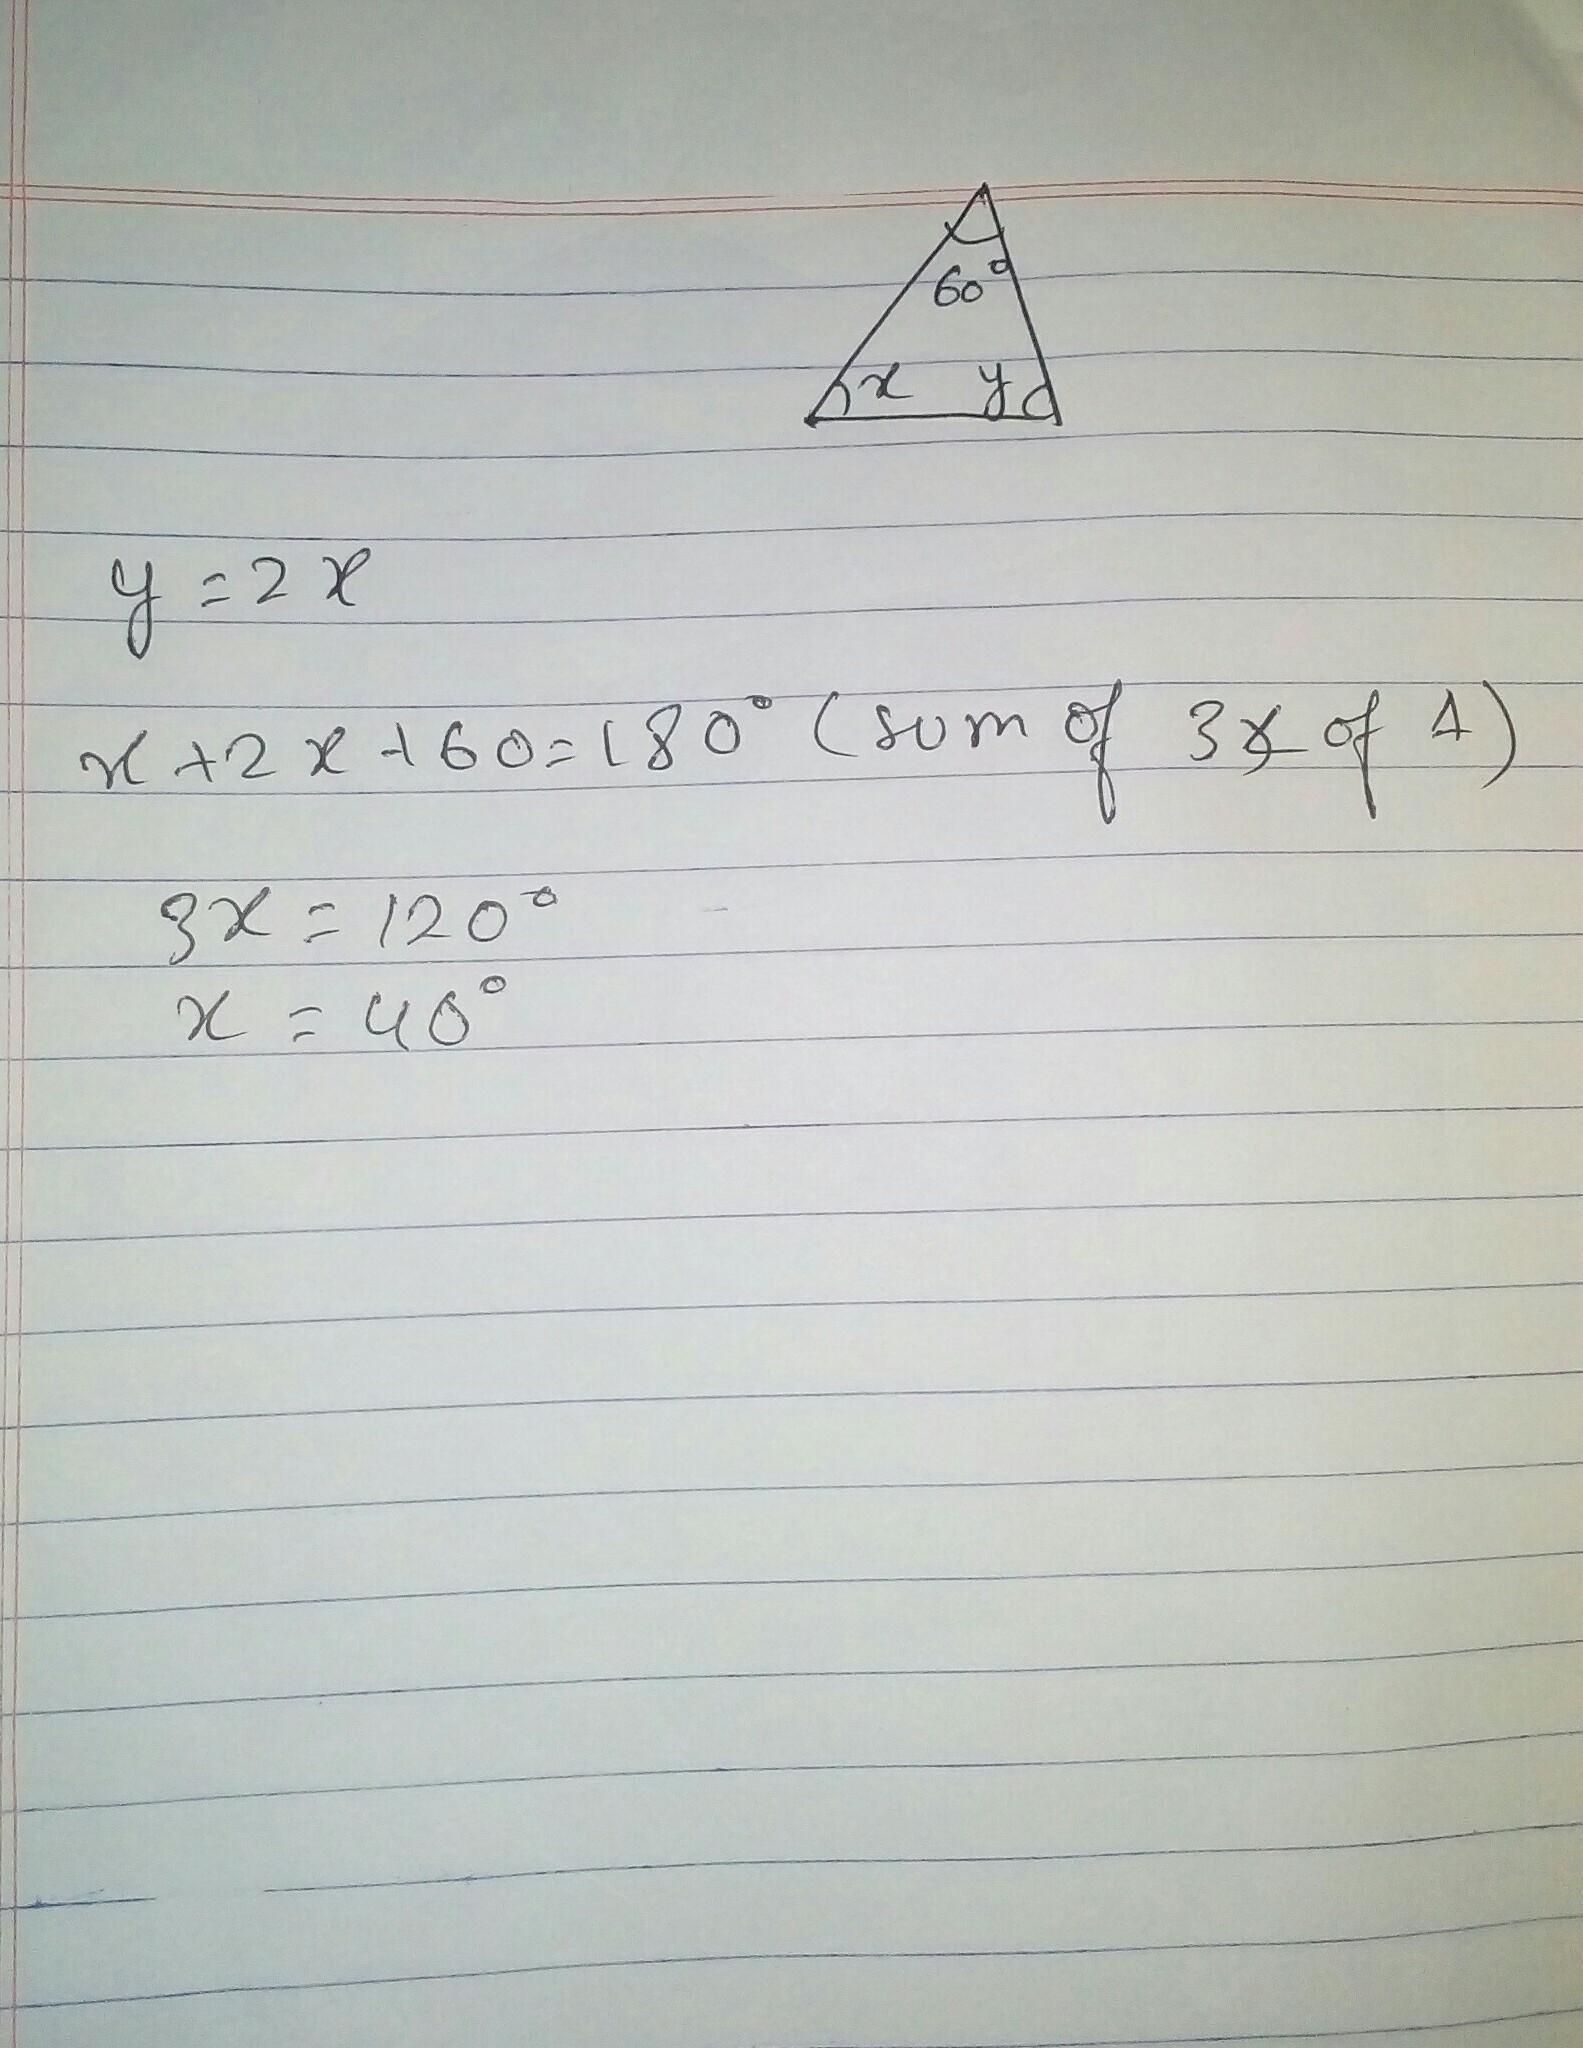 60°
x y
y = 2x
x + 2x + 60 = 180° (sum of 3∡ of Δ)
3x = 120°
x = 40°